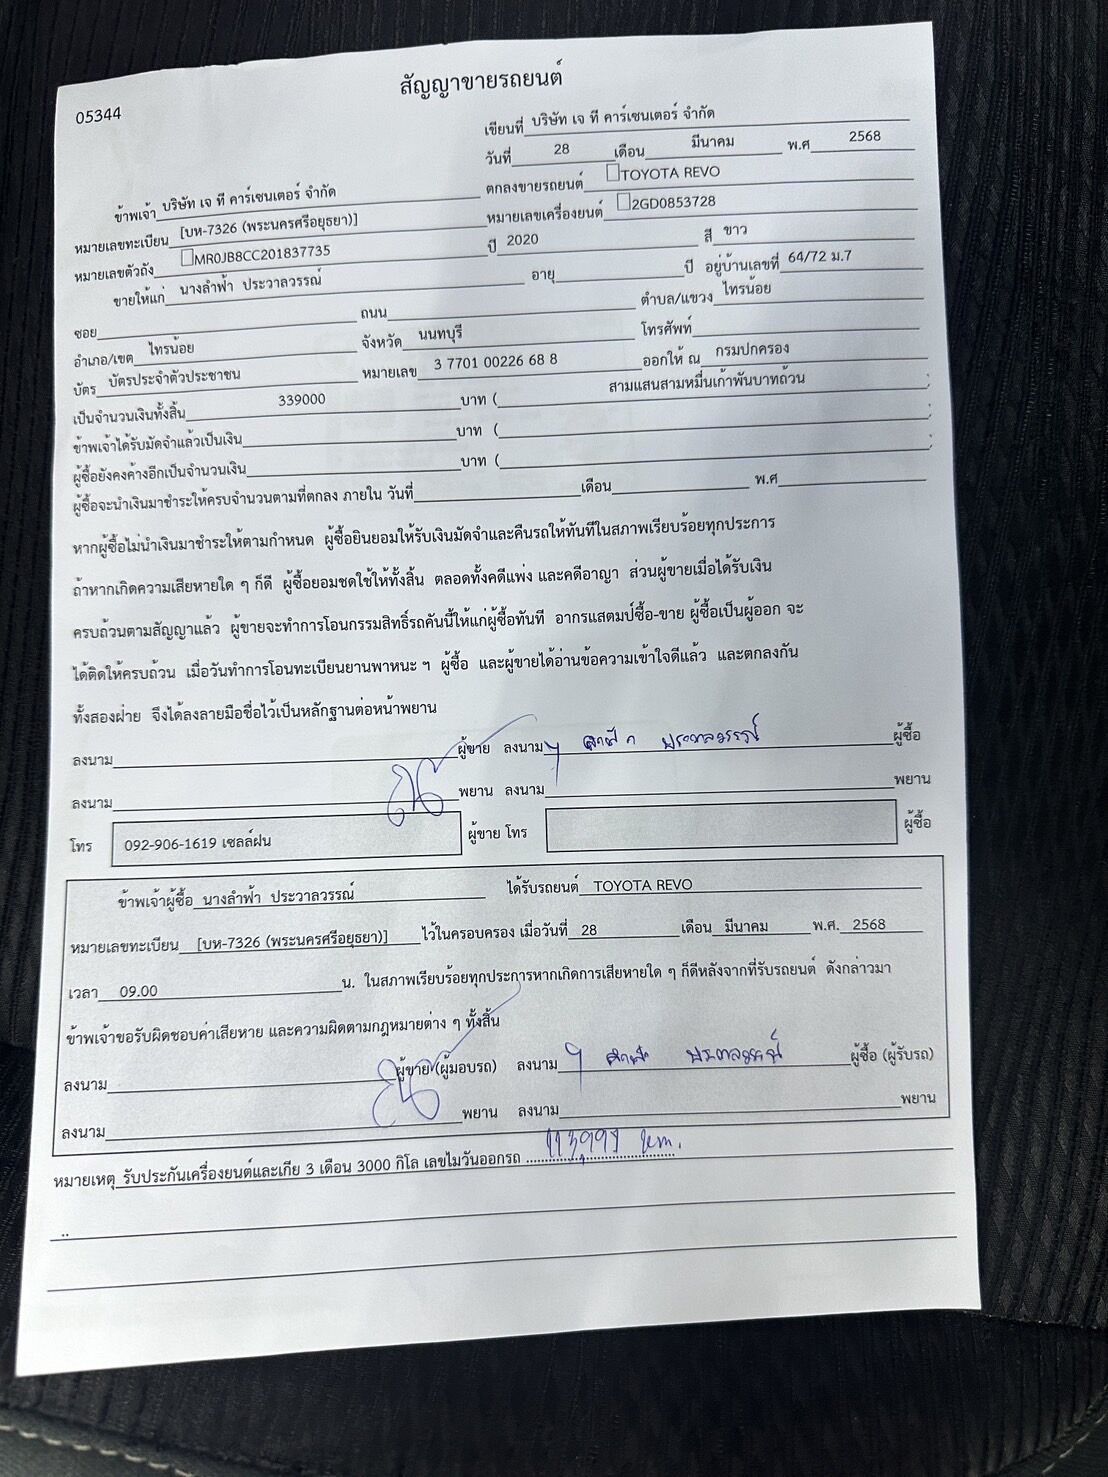 สัญญาขายรถยนต์
05344
เขียนที่ บริษัท เจ ที คาร์เซนเตอร์ จำกัด
วันที่ 28 เดือน มีนาคม พ.ศ 2568
ข้าพเจ้า บริษัท เจ ที คาร์เซนเตอร์ จำกัด ตกลงขายรถยนต์ TOYOTA REVO
หมายเลขทะเบียน [บห-7326 (พระนครศรีอยุธยา)] หมายเลขเครื่องยนต์ 2GD0853728
หมายเลขตัวถัง MR0JB8CC201837735 ปี 2020 สี ขาว
ขายให้แก่ นางลำฟ้า ประวาลวรรณ์ อายุ ปี อยู่บ้านเลขที่ 64/72 ม.7
ซอย ถนน ตำบล/แขวง ไทรน้อย
อำเภอ/เขต ไทรน้อย จังหวัด นนทบุรี โทรศัพท์
บัตร บัตรประจำตัวประชาชน หมายเลข 3 7701 00226 68 8 ออกให้ ณ กรมปกครอง
เป็นจำนวนเงินทั้งสิ้น 339000 บาท ( สามแสนสามหมื่นเก้าพันบาทถ้วน )
ข้าพเจ้าได้รับมัดจำแล้วเป็นเงิน บาท ( )
ผู้ซื้อยังคงค้างอีกเป็นจำนวนเงิน บาท ( )
ผู้ซื้อจะนำเงินมาชำระให้ครบจำนวนตามที่ตกลง ภายใน วันที่ เดือน พ.ศ
หากผู้ซื้อไม่นำเงินมาชำระให้ตามกำหนด ผู้ซื้อยินยอมให้รับเงินมัดจำและคืนรถให้ทันทีในสภาพเรียบร้อยทุกประการ
ถ้าหากเกิดความเสียหายใด ๆ ก็ดี ผู้ซื้อยอมชดใช้ให้ทั้งสิ้น ตลอดทั้งคดีแพ่ง และคดีอาญา ส่วนผู้ขายเมื่อได้รับเงิน
ครบถ้วนตามสัญญาแล้ว ผู้ขายจะทำการโอนกรรมสิทธิ์รถคันนี้ให้แก่ผู้ซื้อทันที อากรแสตมป์ซื้อ-ขาย ผู้ซื้อเป็นผู้ออก จะ
ได้ติดให้ครบถ้วน เมื่อวันทำการโอนทะเบียนยานพาหนะ ฯ ผู้ซื้อ และผู้ขายได้อ่านข้อความเข้าใจดีแล้ว และตกลงกัน
ทั้งสองฝ่าย จึงได้ลงลายมือชื่อไว้เป็นหลักฐานต่อหน้าพยาน
ลงนาม ผู้ขาย ลงนาม ลำฟ้า ประวาลวรรณ์ ผู้ซื้อ
ลงนาม พยาน ลงนาม พยาน
โทร 092-906-1619 เซลล์ฝน ผู้ขาย โทร ผู้ซื้อ
ข้าพเจ้าผู้ซื้อ นางลำฟ้า ประวาลวรรณ์ ได้รับรถยนต์ TOYOTA REVO
หมายเลขทะเบียน [บห-7326 (พระนครศรีอยุธยา)] ไว้ในครอบครอง เมื่อวันที่ 28 เดือน มีนาคม พ.ศ. 2568
เวลา 09.00 น. ในสภาพเรียบร้อยทุกประการหากเกิดการเสียหายใด ๆ ก็ดีหลังจากที่รับรถยนต์ ดังกล่าวมา
ข้าพเจ้าขอรับผิดชอบค่าเสียหาย และความผิดตามกฎหมายต่าง ๆ ทั้งสิ้น
ลงนาม ผู้ขาย (ผู้มอบรถ) ลงนาม ลำฟ้า ประวาลวรรณ์ ผู้ซื้อ (ผู้รับรถ)
ลงนาม พยาน ลงนาม พยาน
หมายเหตุ รับประกันเครื่องยนต์และเกีย 3 เดือน 3000 กิโล เลขไมวันออกรถ 113,991 km.
..